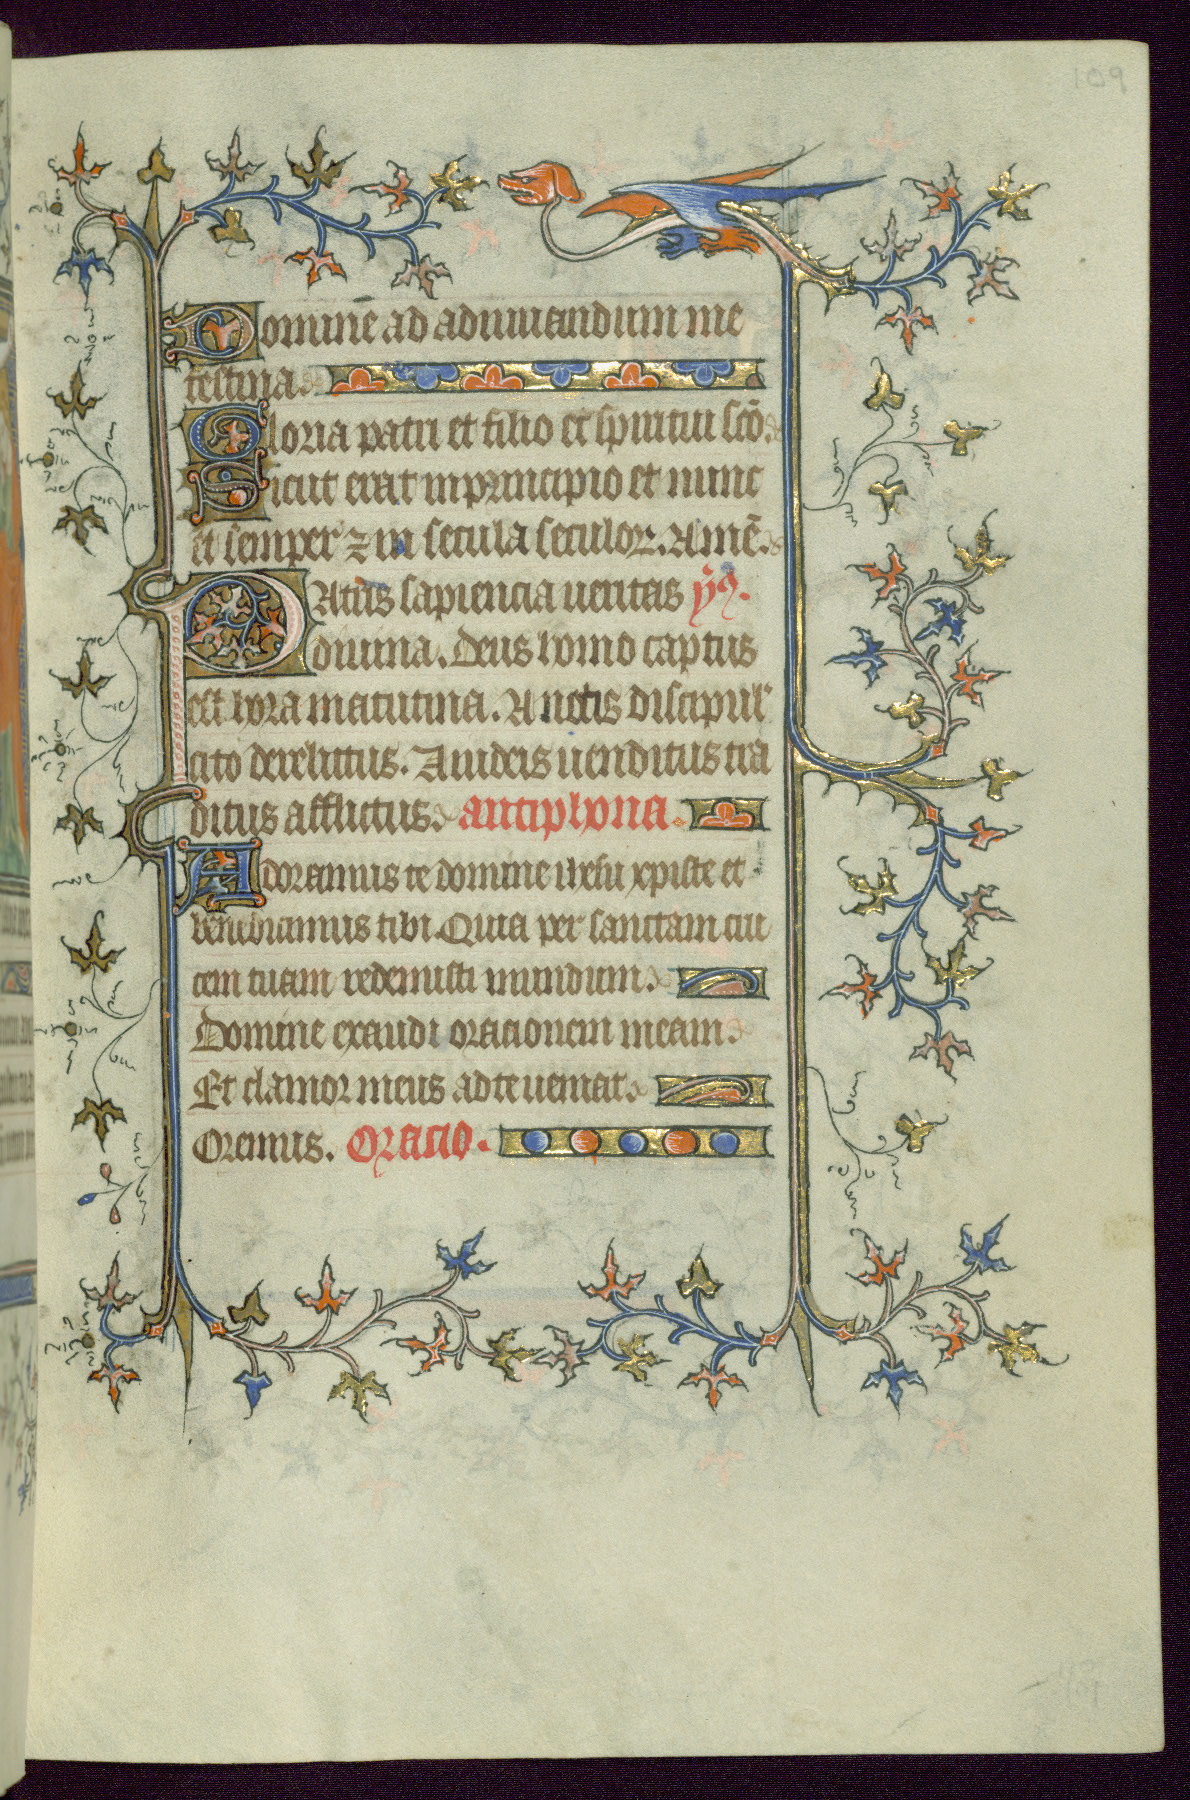 109
Domine ad adiuuandum me
festina.
Gloria patri et filio et spiritui scō.
Sicut erat in principio et nunc
et semper ⁊ in secula seculoꝝ. Amē.
Patris sapiencia ueritas yꝰ.
diuina. Deus homo captus
est hora matutina. A notis discipulˢ
cito derelictus. A iudeis uenditus tra
ditus afflictus. antiphona.
Adoramus te domine ihesu xpiste et
benedicimus tibi. Quia per sanctam cru
cem tuam redemisti mundum.
Domine exaudi oracionem meam.
Et clamor meus ad te ueniat.
Oremus. Oracio.